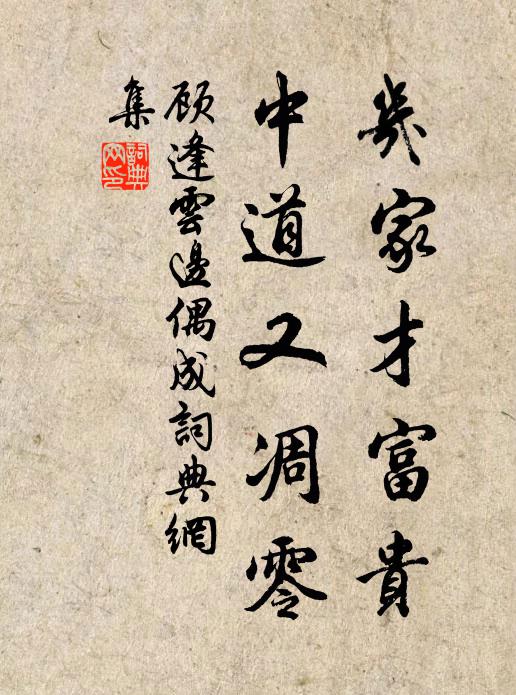 幾家才富貴
中道又凋零
顾逢雲邊偶成詞典網
集
詞典
网印